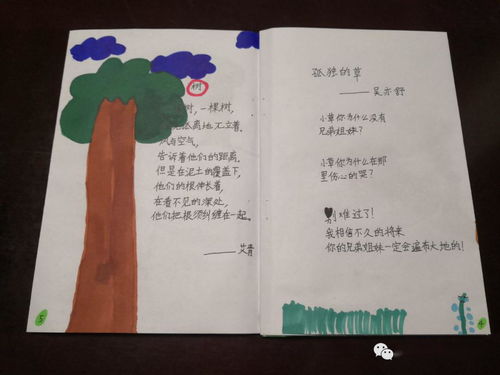 树
树，一棵树，
离地兀立着。
风与空气，
告诉着他们的距离。
但是在泥土的覆盖下，
他们的根伸长着，
在看不见的深处，
他们把根须纠缠在一起。
——艾青
5
孤独的草
——吴亦舒
小草你为什么没有
兄弟姐妹？
小草你为什么在那
里伤心的哭？
别难过了！
我相信不久的将来
你的兄弟姐妹一定会遍布大地的！
4